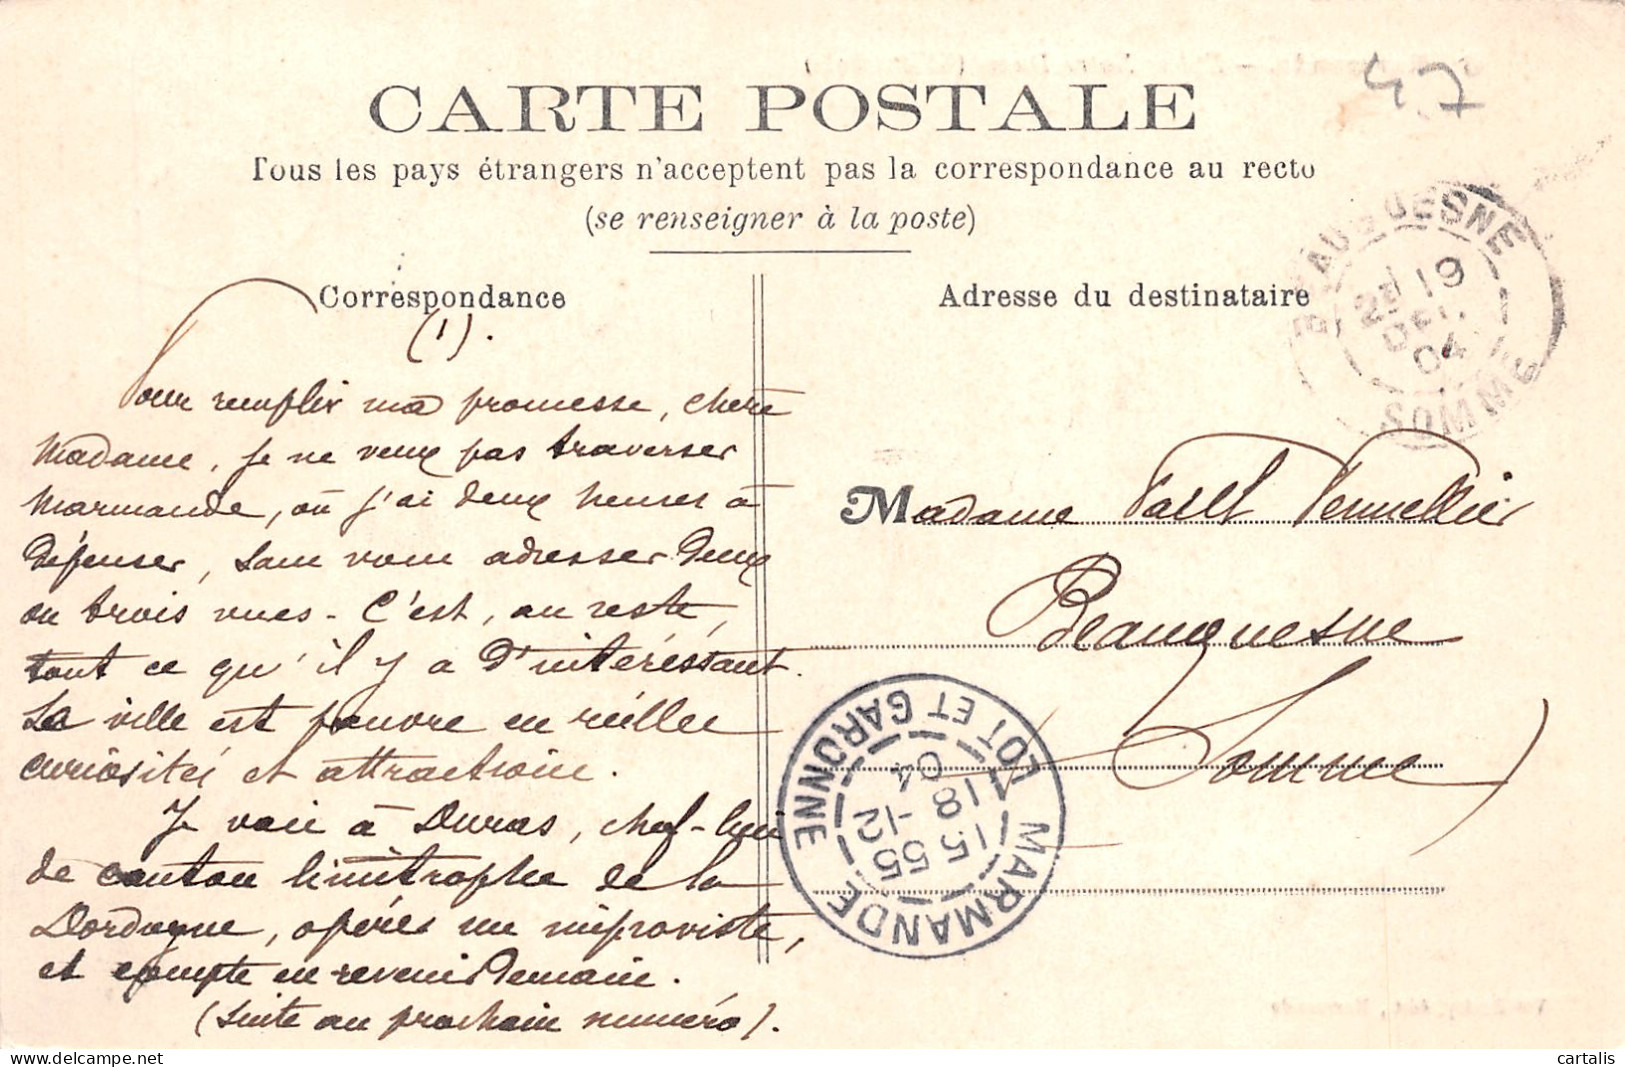 47
CARTE POSTALE
Tous les pays étrangers n'acceptent pas la correspondance au recto
(se renseigner à la poste)
Correspondance
(1).
Pour remplir ma promesse, chère
Madame, je ne veux pas traverser
Marmande, où j'ai deux heures à
dépenser, sans vous adresser deux
ou trois vues - C'est, au reste,
tout ce qu'il y a d'intéréssant.
La ville est pauvre en vieilles
curiosités et attractions.
Je vais à Duras, chef-lieu
de canton limitrophe de la
Dordogne, opérer un improviste,
et compte en revenir demain.
(Suite au prochain numéro).
Adresse du destinataire
Madame Vermellier
Beauquesne
Somme
BEAUQUESNE
19
DEC.
04
SOMME
MARMANDE
15 55
18 -12
04
LOT ET GARONNE
cartalis